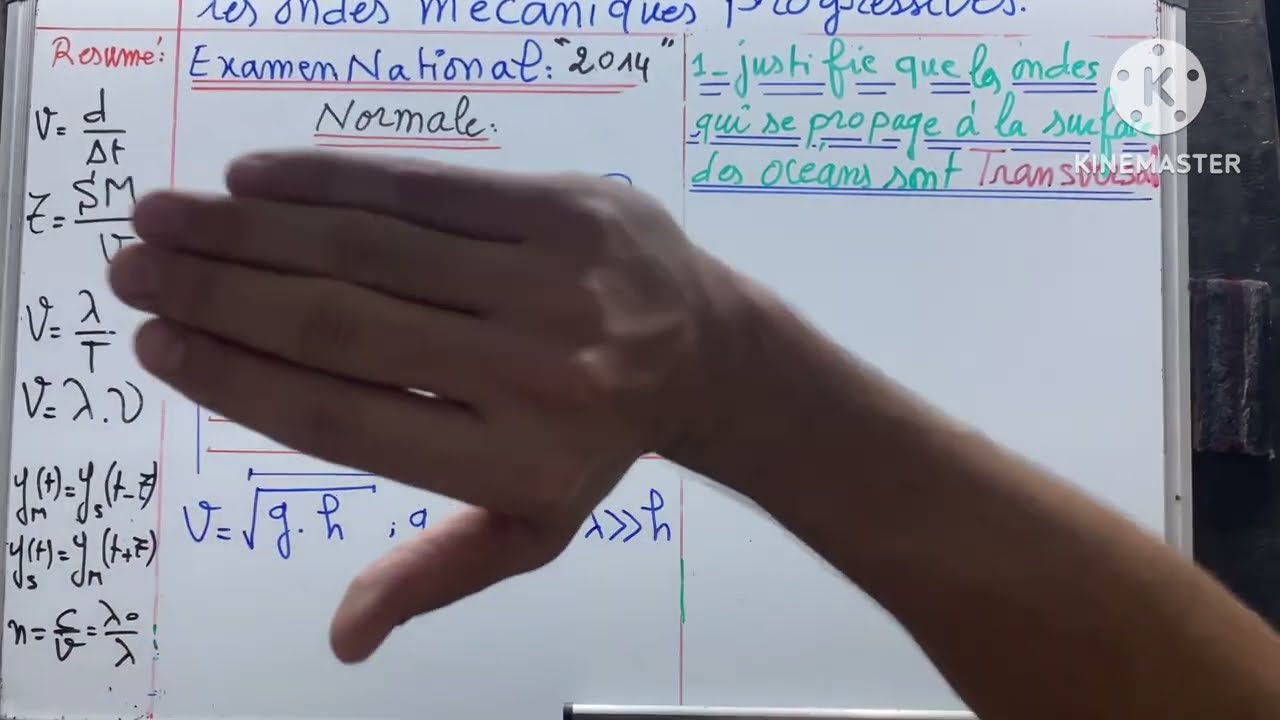 les ondes mécaniques progressives.
Resumé:
V = d/Δt
τ = SM/V
V = λ/T
V = λ.ν
y_M(t) = y_S(t-τ)
y_S(t) = y_M(t+τ)
n = c/v = λ₀/λ
Examen National: "2014"
Normale:
V = √g.h ; g
λ>>h
1_ justifie que les ondes
qui se propage à la surface
des oceans sont Transversal
K
KINEMASTER